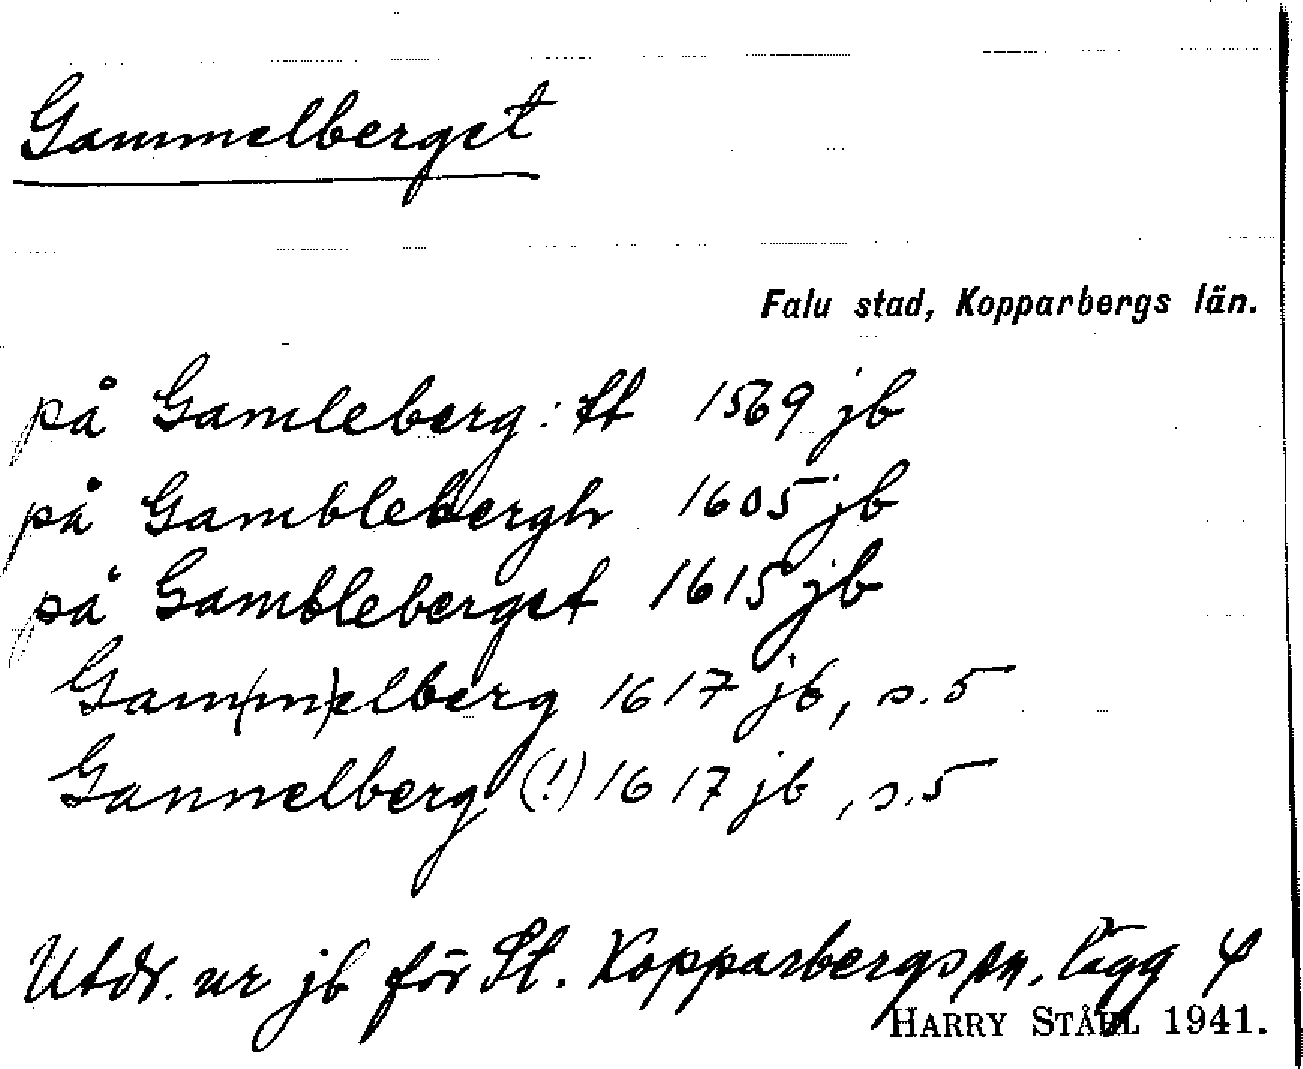 Gammelberget
Falu stad, Kopparbergs län.
på Gamleberg: 1569 jb
på Gamblebergh 1605 jb
på Gambleberget 1615 jb
Gam(m)elberg 1617 jb, s. 5
Gannelberg (!) 1617 jb, s. 5
Utdr. ur jb för St. Kopparbergs sn. lägg 4
HARRY STÅHL 1941.